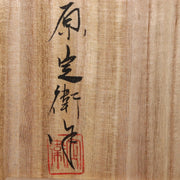 原定衛作